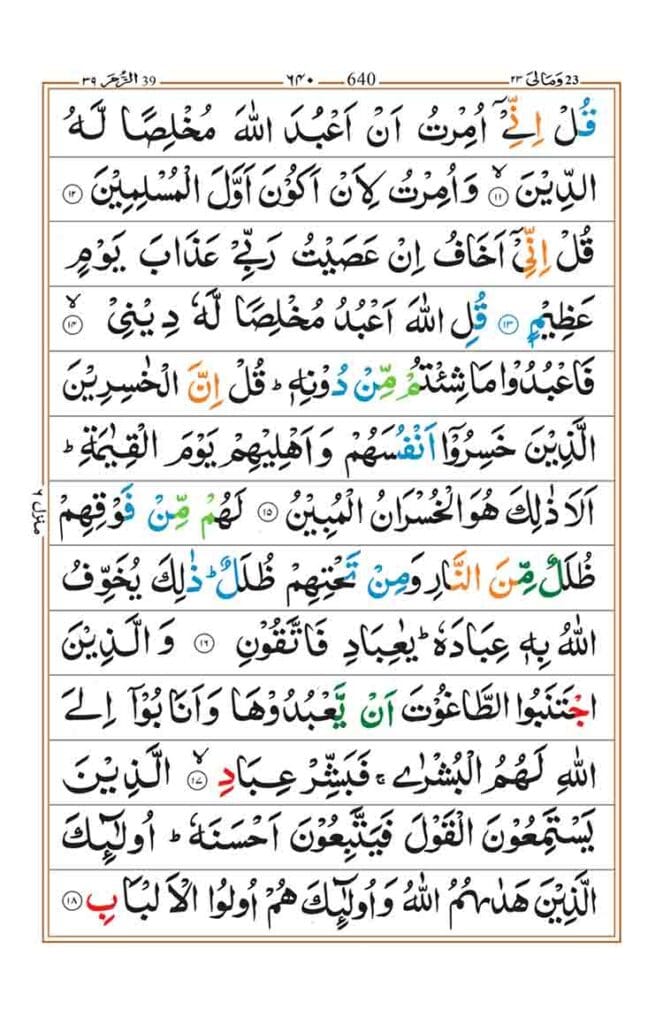 23 وَمَالِیَ ٢٣ — 640 — ٦٤٠ — 39 اَلزُّمَر ٣٩
قُلْ اِنِّیْۤ اُمِرْتُ اَنْ اَعْبُدَ اللّٰهَ مُخْلِصًا لَّهُ
الدِّیْنَ ۙ﴿۱۱﴾ وَاُمِرْتُ لِاَنْ اَكُوْنَ اَوَّلَ الْمُسْلِمِیْنَ ﴿۱۲﴾
قُلْ اِنِّیْۤ اَخَافُ اِنْ عَصَیْتُ رَبِّیْ عَذَابَ یَوْمٍ
عَظِیْمٍ ﴿۱۳﴾ قُلِ اللّٰهَ اَعْبُدُ مُخْلِصًا لَّهٗ دِیْنِیْ ۙ﴿۱۴﴾
فَاعْبُدُوْا مَا شِئْتُمْ مِّنْ دُوْنِهٖ ؕ قُلْ اِنَّ الْخٰسِرِیْنَ
الَّذِیْنَ خَسِرُوْۤا اَنْفُسَهُمْ وَاَهْلِیْهِمْ یَوْمَ الْقِیٰمَةِ ؕ
اَلَا ذٰلِكَ هُوَ الْخُسْرَانُ الْمُبِیْنُ ﴿۱۵﴾ لَهُمْ مِّنْ فَوْقِهِمْ
ظُلَلٌ مِّنَ النَّارِ وَمِنْ تَحْتِهِمْ ظُلَلٌ ؕ ذٰلِكَ یُخَوِّفُ
اللّٰهُ بِهٖ عِبَادَهٗ ؕ یٰعِبَادِ فَاتَّقُوْنِ ﴿۱۶﴾ وَالَّذِیْنَ
اجْتَنَبُوا الطَّاغُوْتَ اَنْ یَّعْبُدُوْهَا وَاَنَابُوْۤا اِلَی
اللّٰهِ لَهُمُ الْبُشْرٰی ۚ فَبَشِّرْ عِبَادِ ۙ﴿۱۷﴾ الَّذِیْنَ
یَسْتَمِعُوْنَ الْقَوْلَ فَیَتَّبِعُوْنَ اَحْسَنَهٗ ؕ اُولٰٓئِكَ
الَّذِیْنَ هَدٰىهُمُ اللّٰهُ وَاُولٰٓئِكَ هُمْ اُولُوا الْاَلْبَابِ ﴿۱۸﴾
منزل ٦